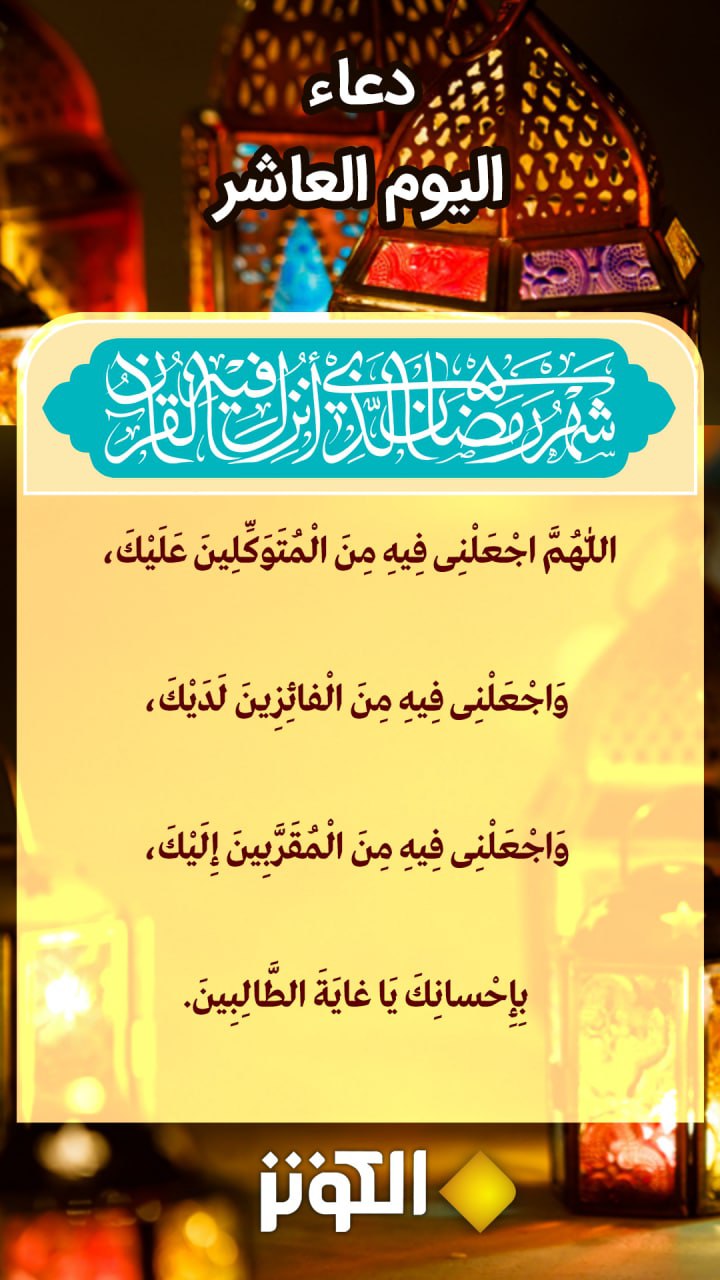 دعاء
اليوم العاشر
شَهْرُ رَمَضَانَ الَّذِي أُنْزِلَ فِيهِ الْقُرْآنُ
اللّٰهُمَّ اجْعَلْنِى فِيهِ مِنَ الْمُتَوَكِّلِينَ عَلَيْكَ،
وَاجْعَلْنِى فِيهِ مِنَ الْفائِزِينَ لَدَيْكَ،
وَاجْعَلْنِى فِيهِ مِنَ الْمُقَرَّبِينَ إِلَيْكَ،
بِإِحْسانِكَ يَا غايَةَ الطَّالِبِينَ.
الكوثر